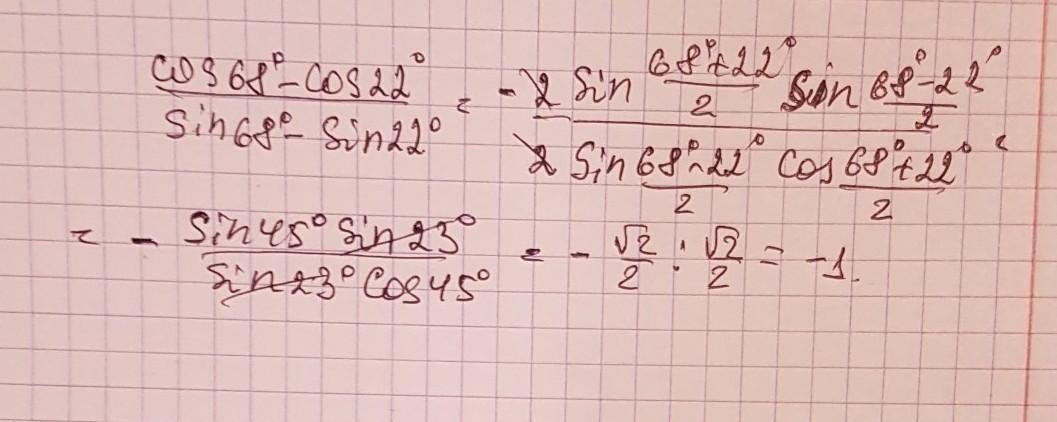 cos68°-cos22° / sin68°-sin22° = - 2 sin 68°+22°/2 sin 68°-22°/2 / 2 sin 68°-22°/2 cos 68°+22°/2 =
= - sin45° sin23° / sin23° cos45° = - √2/2 : √2/2 = -1.